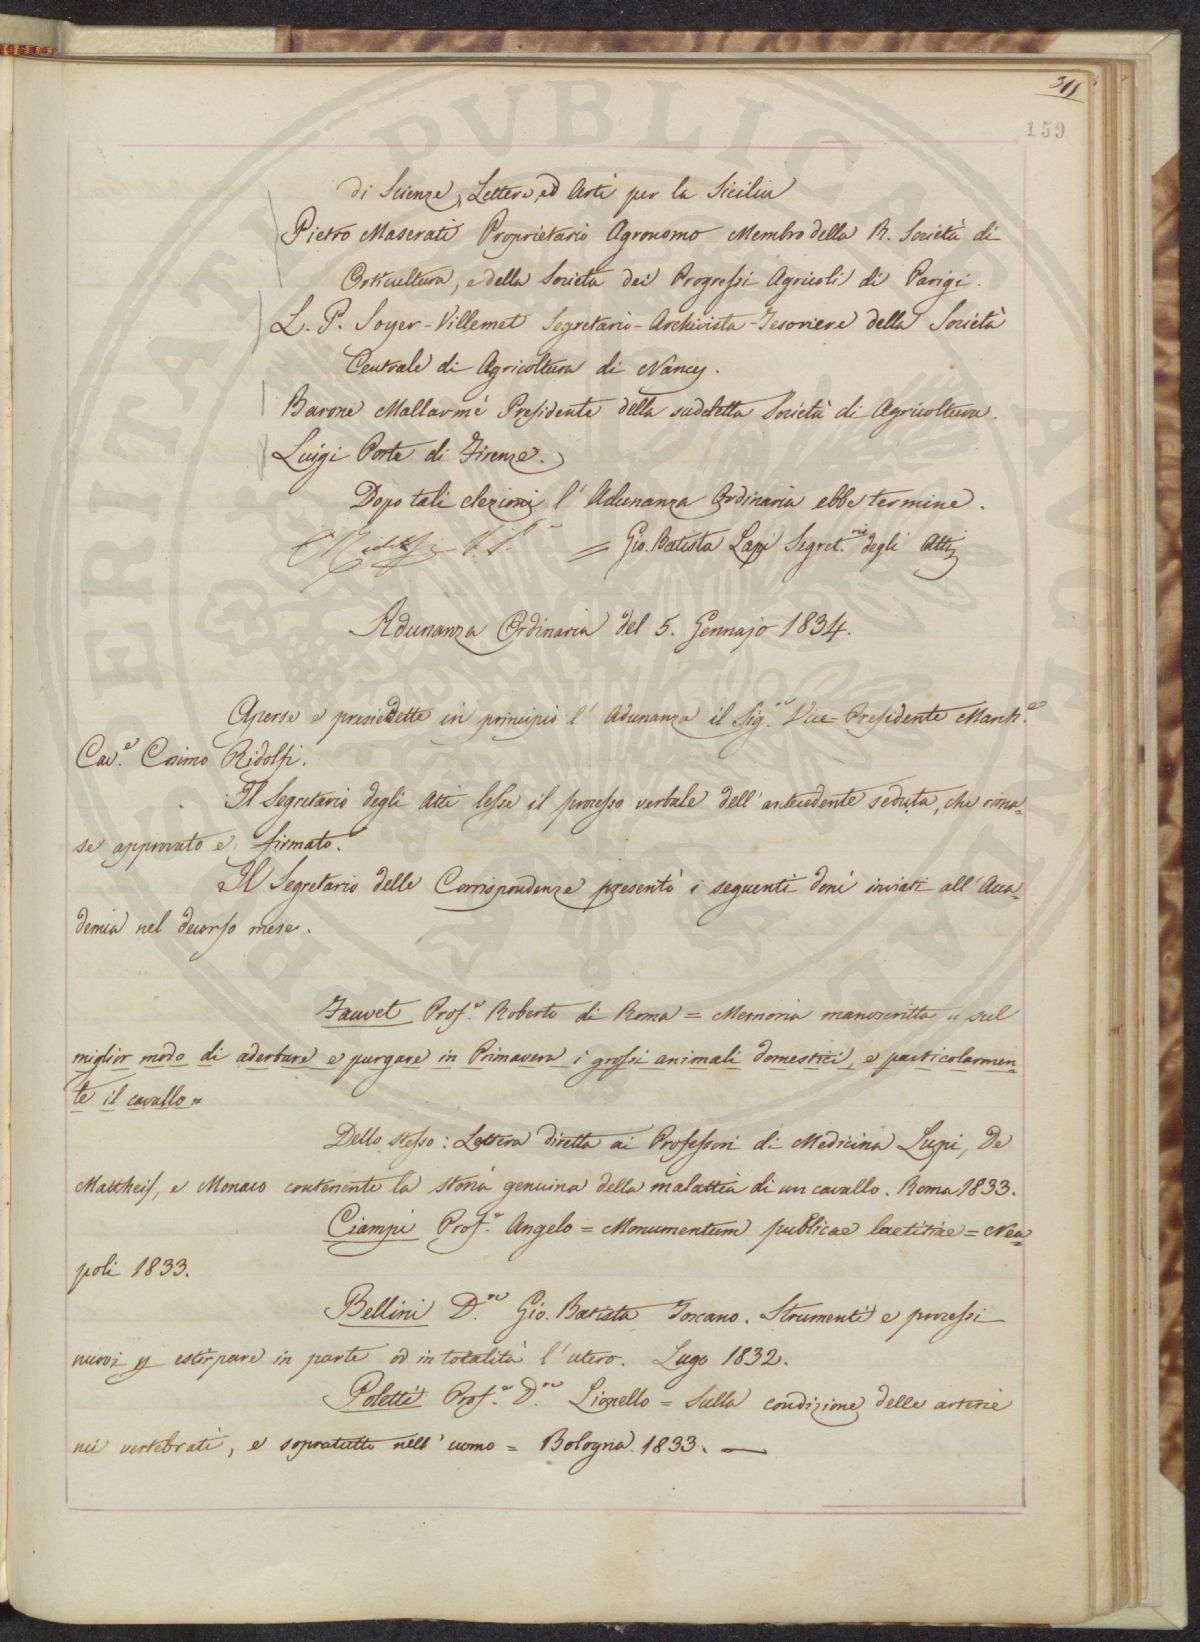 311
159
di Scienze, Lettere, ed Arti per la Sicilia
Pietro Maserati Proprietario Agronomo Membro della R. Società di
Orticultura, e della Società dei Progressi Agricoli di Parigi.
L. P. Soyer-Villemet Segretario-Archivista-Tesoriere della Società
Centrale di Agricoltura di Nancy.
Barone Mallarmé Presidente della suddetta Società di Agricoltura.
Luigi Porte di Firenze.
Dopo tali elezioni l' Adunanza Ordinaria ebbe termine.
C Ridolfi V. P. = Gio. Batista Lapi Segret.rio degli Atti
Adunanza Ordinaria del 5. Gennajo 1834.
Aperse e presiedette in principio l' Adunanza il Sig.re Vice-Presidente March.e
Cav.e Cosimo Ridolfi.
Il Segretario degli Atti lesse il processo verbale dell' antecedente seduta, che rima=
se approvato e firmato.
Il Segretario delle Corrispondenze presentò i seguenti doni inviati all' Acca=
demia nel decorso mese.
Fauvet Prof.e Roberto di Roma = Memoria manoscritta " sul
miglior modo di aderbare e purgare in Primavera i grossi animali domestici, e particolarmen=
te il cavallo "
Dello stesso: Lettera diretta ai Professori di Medicina Lupi, De
Mattheis, e Monaco contenente la storia genuina della malattia di un cavallo. Roma 1833.
Ciampi Prof.e Angelo = Monumentum publicae laetitiae = Nea=
poli 1833.
Bellini D.re Gio. Batista Toscano. Strumenti e processi
nuovi p estirpare in parte od in totalità l' utero. Lugo 1832.
Poletti Prof.e D.re Lionello = Sulla condizione delle arterie
nei vertebrati, e sopratutto nell' uomo = Bologna. 1833. —
PVBLICAE